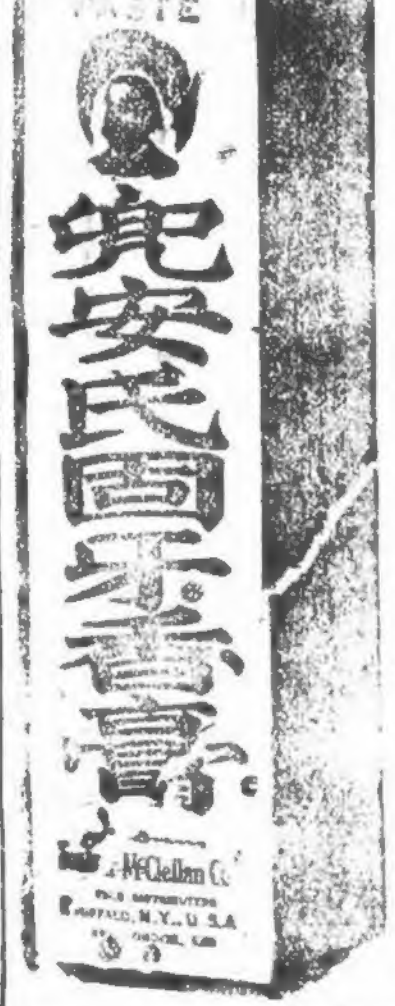 PASTE
兜安氏固牙香膏
McClellan Co
BUFFALO, N.Y., U.S.A.